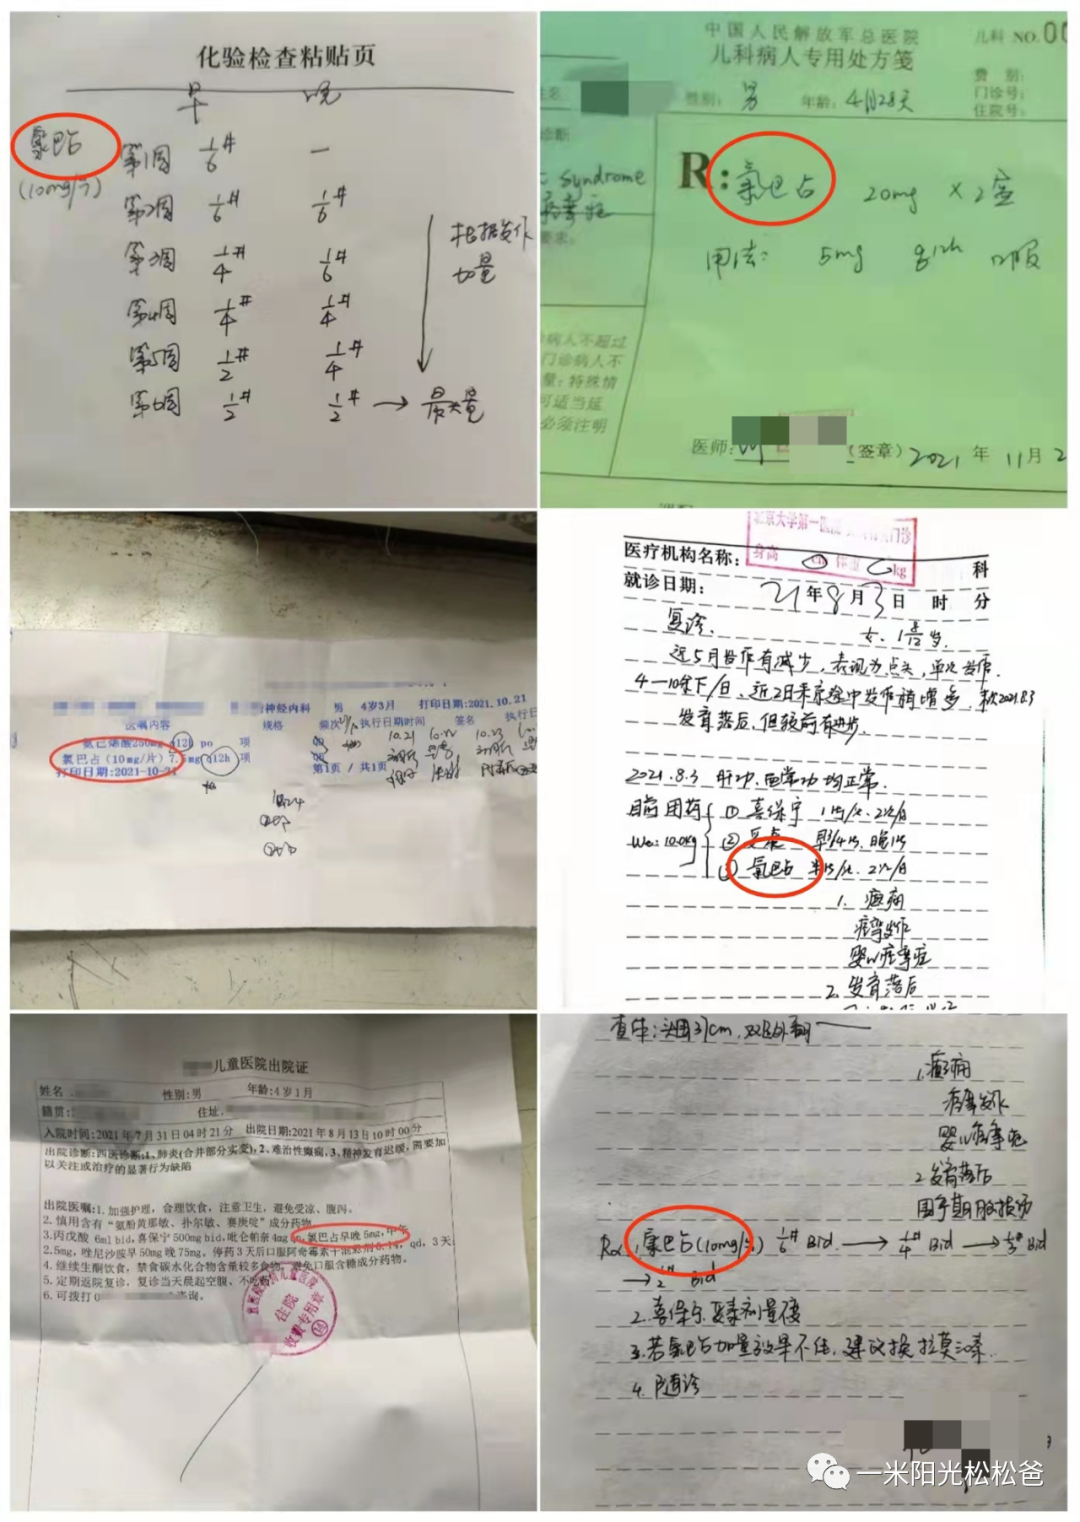 化验检查粘贴页
早 晚
氯巴占
(10mg/片)
第1周 1/6# —
第2周 1/6# 1/6#
第3周 1/4# 1/6#
第4周 1/4# 1/4#
第5周 1/2# 1/4#
第6周 1/2# 1/2# → 最大量
根据发作
加量
中国人民解放军总医院
儿科病人专用处方笺
儿科 NO.00
费别:
门诊号:
住院号:
性别: 男 年龄: 4月28天
诊断
syndrome
R: 氯巴占 20mg × 2盒
用法: 5mg q12h 口服
病人不超过
门诊病人不
量;特殊情
可适当延
必须注明
医师: (签章) 2021年 11月 2
神经内科 男 4岁3月 打印日期:2021.10.21
医嘱内容 规格 频次 执行日期时间 签名 执行日
10.21 10.22 10.23
氨己烯酸250mg q12h po 项
氯巴占 (10mg/片) 7.5mg q12h 项
打印日期:2021-10-21 第1页 / 共1页
北京大学第一医院
门诊
身高 cm 体重 kg
医疗机构名称: 科
就诊日期: 21年8月3日 时 分
复诊. 女.
近5月发作有减少,表现为点头,单次发作.
4—10余下/日、近2日来
发育落后,但较前有进步.
2021.8.3 肝功、血常功均正常.
目前用药 ① 喜保宁 1片/次. 2次/日
Wt: 10.0kg
③ 氯巴占 半片/次. 2次/日
1. 癫痫
痉挛发作
婴儿痉挛症
2. 发育落后
儿童医院出院证
姓名 性别:男 年龄:4岁1月
籍贯: 住址:
入院时间:2021年7月31日04时21分 出院日期:2021年8月13日10时00分
出院诊断:西医诊断:1、肺炎(合并部分实变),2、难治性癫痫,3、精神发育迟缓,需要加
以关注或治疗的显著行为缺陷
出院医嘱:1.加强护理,合理饮食,注意卫生,避免受凉、腹泻。
2.慎用含有“氨酚黄那敏、扑尔敏、赛庚啶”成分药物
3.丙戊酸 6ml bid,喜保宁 500mg bid,吡仑帕奈 4mg qn,氯巴占早晚 5mg,中午
2.5mg,唑尼沙胺早 50mg 晚 75mg,停药3天后口服阿奇霉素干混悬剂 qd,3天;
4.继续生酮饮食,禁食碳水化合物含量较多食物,避免口服含糖成分药物。
5.定期返院复诊,复诊当天晨起空腹、不吃
6.可拨打0 咨询。
儿童医院
住院
收费专用章
查体:头围37cm,
1. 癫痫
痉挛发作
婴儿痉挛症
2. 发育落后
围产期脑损伤
Rx: 1. 氯巴占(10mg/片) 1/6# Bid. → 1/4# Bid → 1/3# Bid
→ 1/2# Bid
2. 喜保宁. 妥泰剂量不变
3. 若氯巴占加量效果不佳,建议换拉莫三嗪.
4. 随诊
一米阳光松松爸